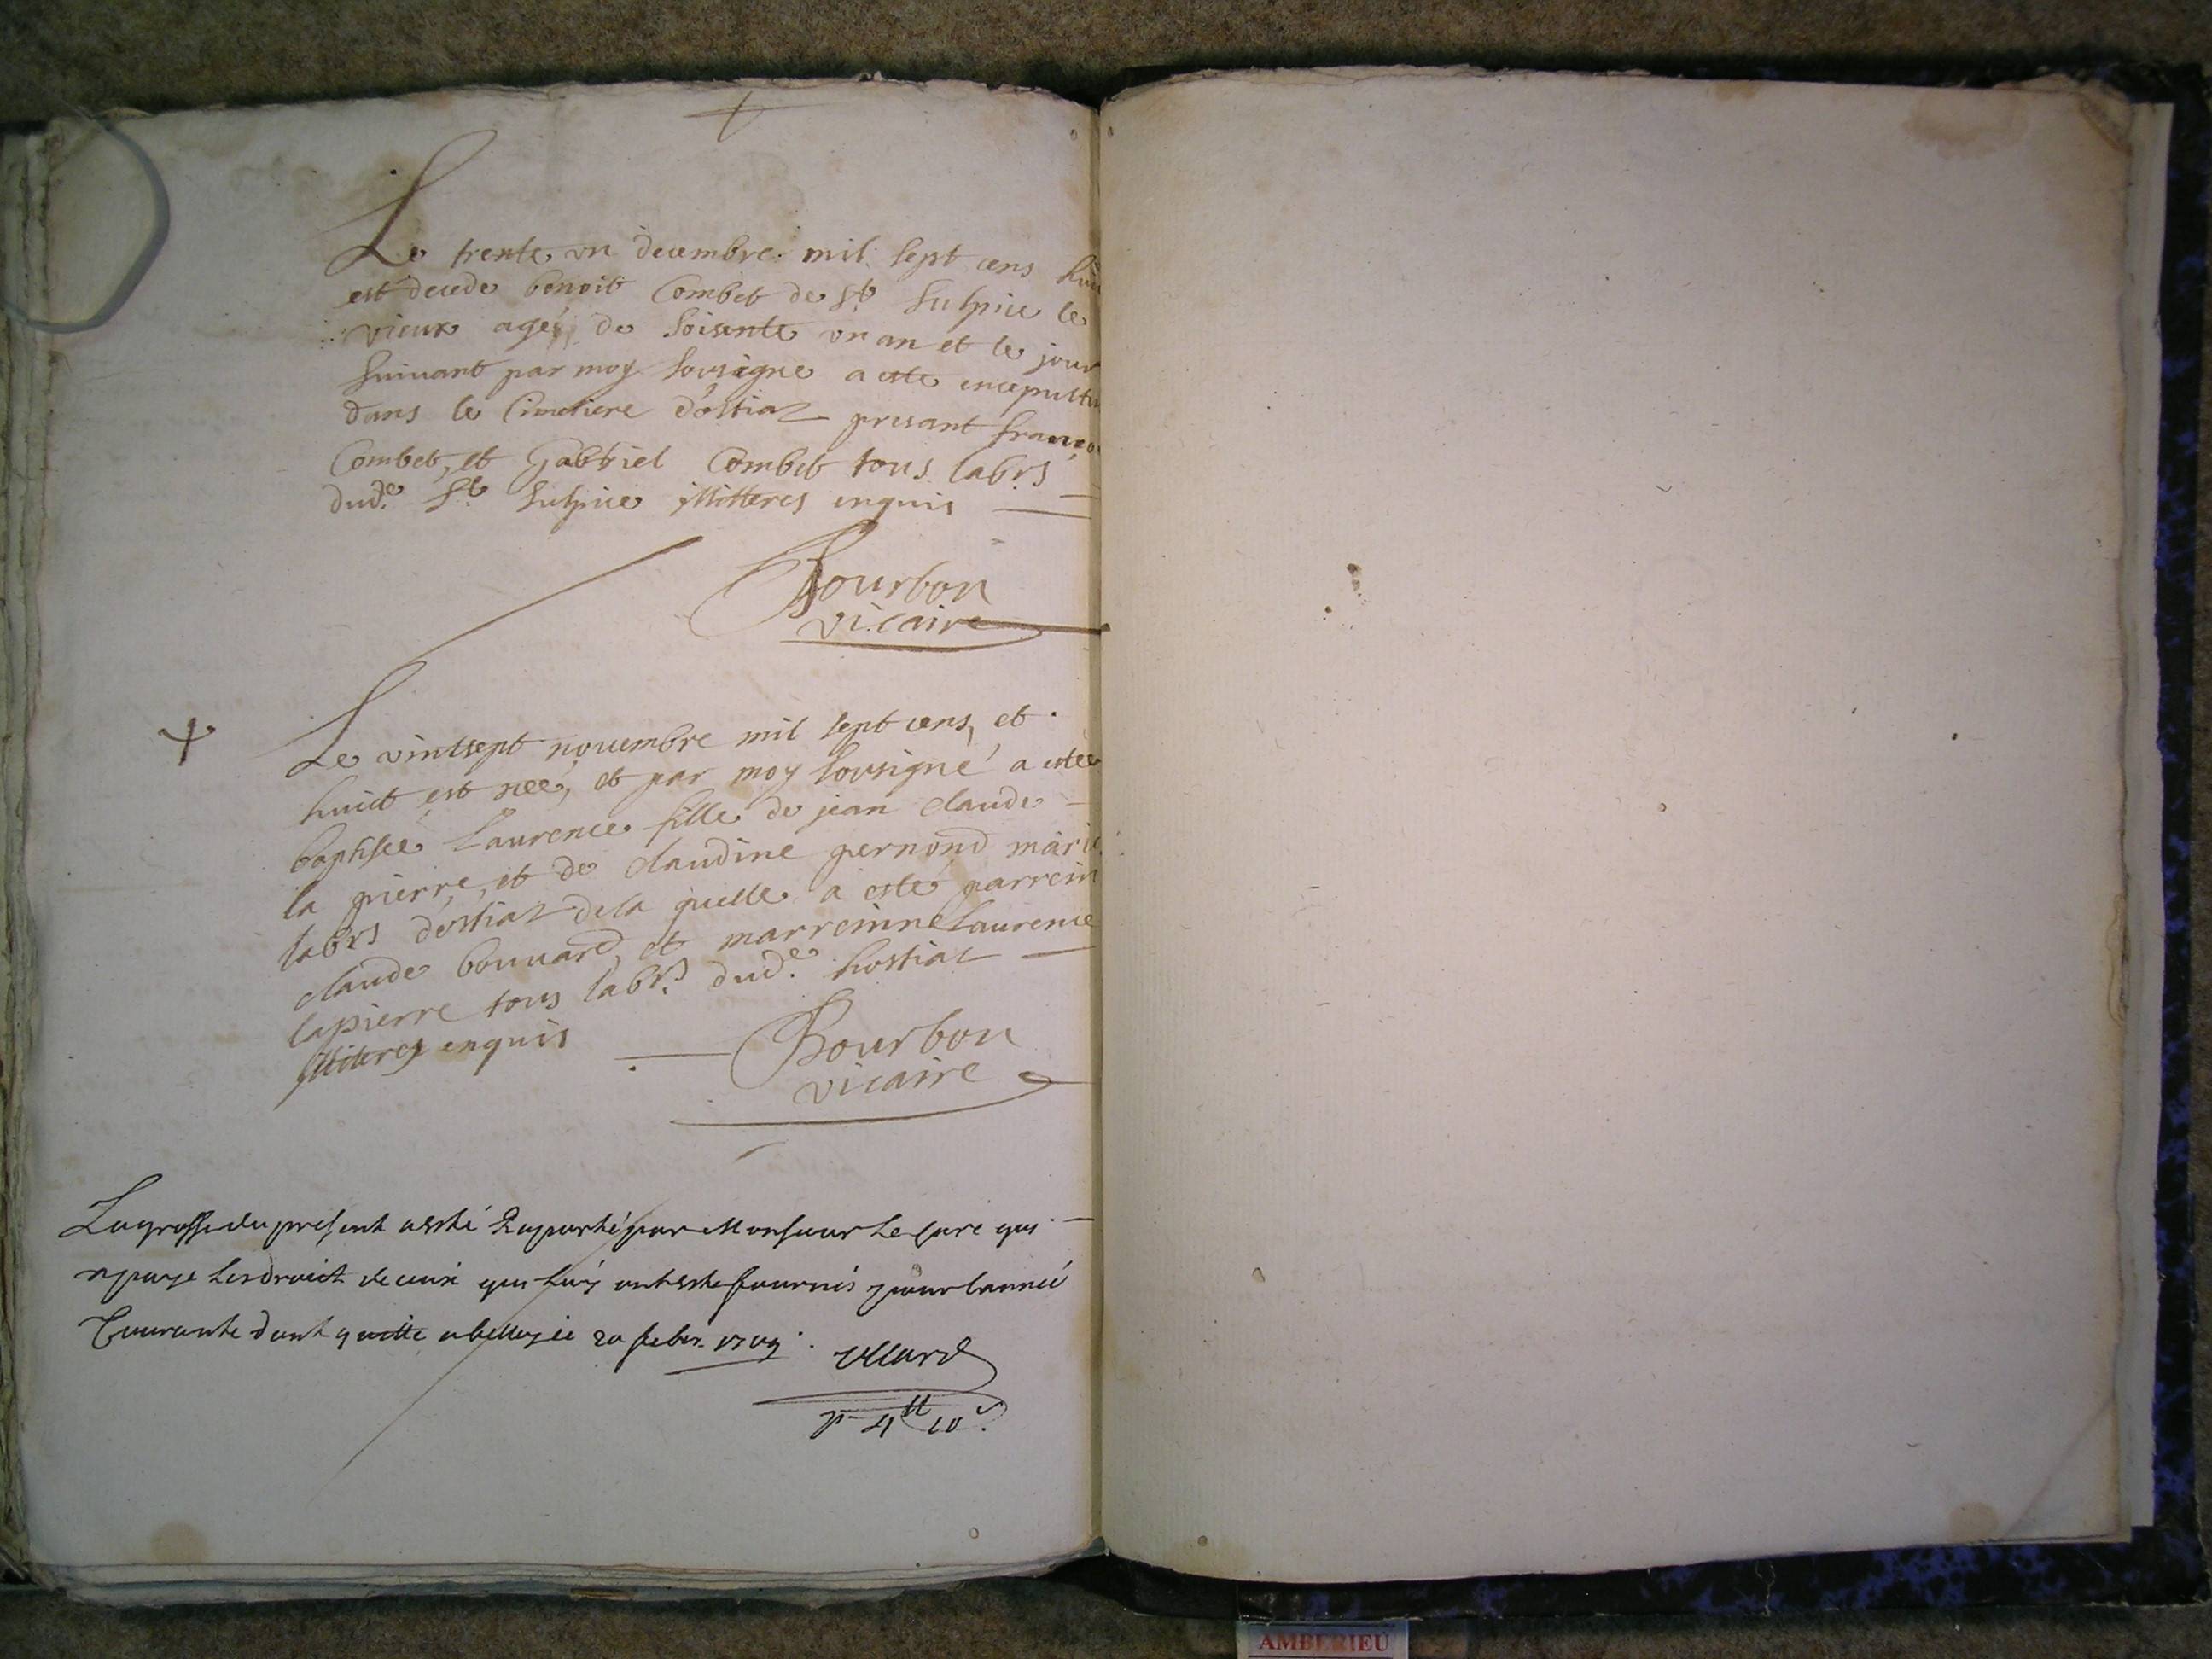 Le trente un decembre mil sept cens huit
est decede benoit Combet de St Sulpice le
vieux agé de soisente un an et le jour
suivant par moy sousigne a este ensepultu
dans le Cimetiere d'ostiaz presant françoi
Combet, et Gabriel Combet tous labrs
dude St Sulpice illitteres enquis
Bourbon
vicaire
Le vintsept novembre mil sept cens, et
huict est neé, et par moy sousigné a esteé
baptiseé Laurence fille de jean claude
la pierre, et de claudine pernond marié
labrs d'ostiaz de la quelle a esté parrein
claude bouvard, et marreinne Laurence
lapierre tous labrs dude hostiaz
illiteres enquis
Bourbon
vicaire
La grosse du present a esté Raporté par Monsieur Le Cure qui
a paye Les droict de ceux qui luy ont este fournis pour lanneé
Courante dont quitte a belley ce 20 febr. 1709
p 4tt 10s.
AMBERIEU